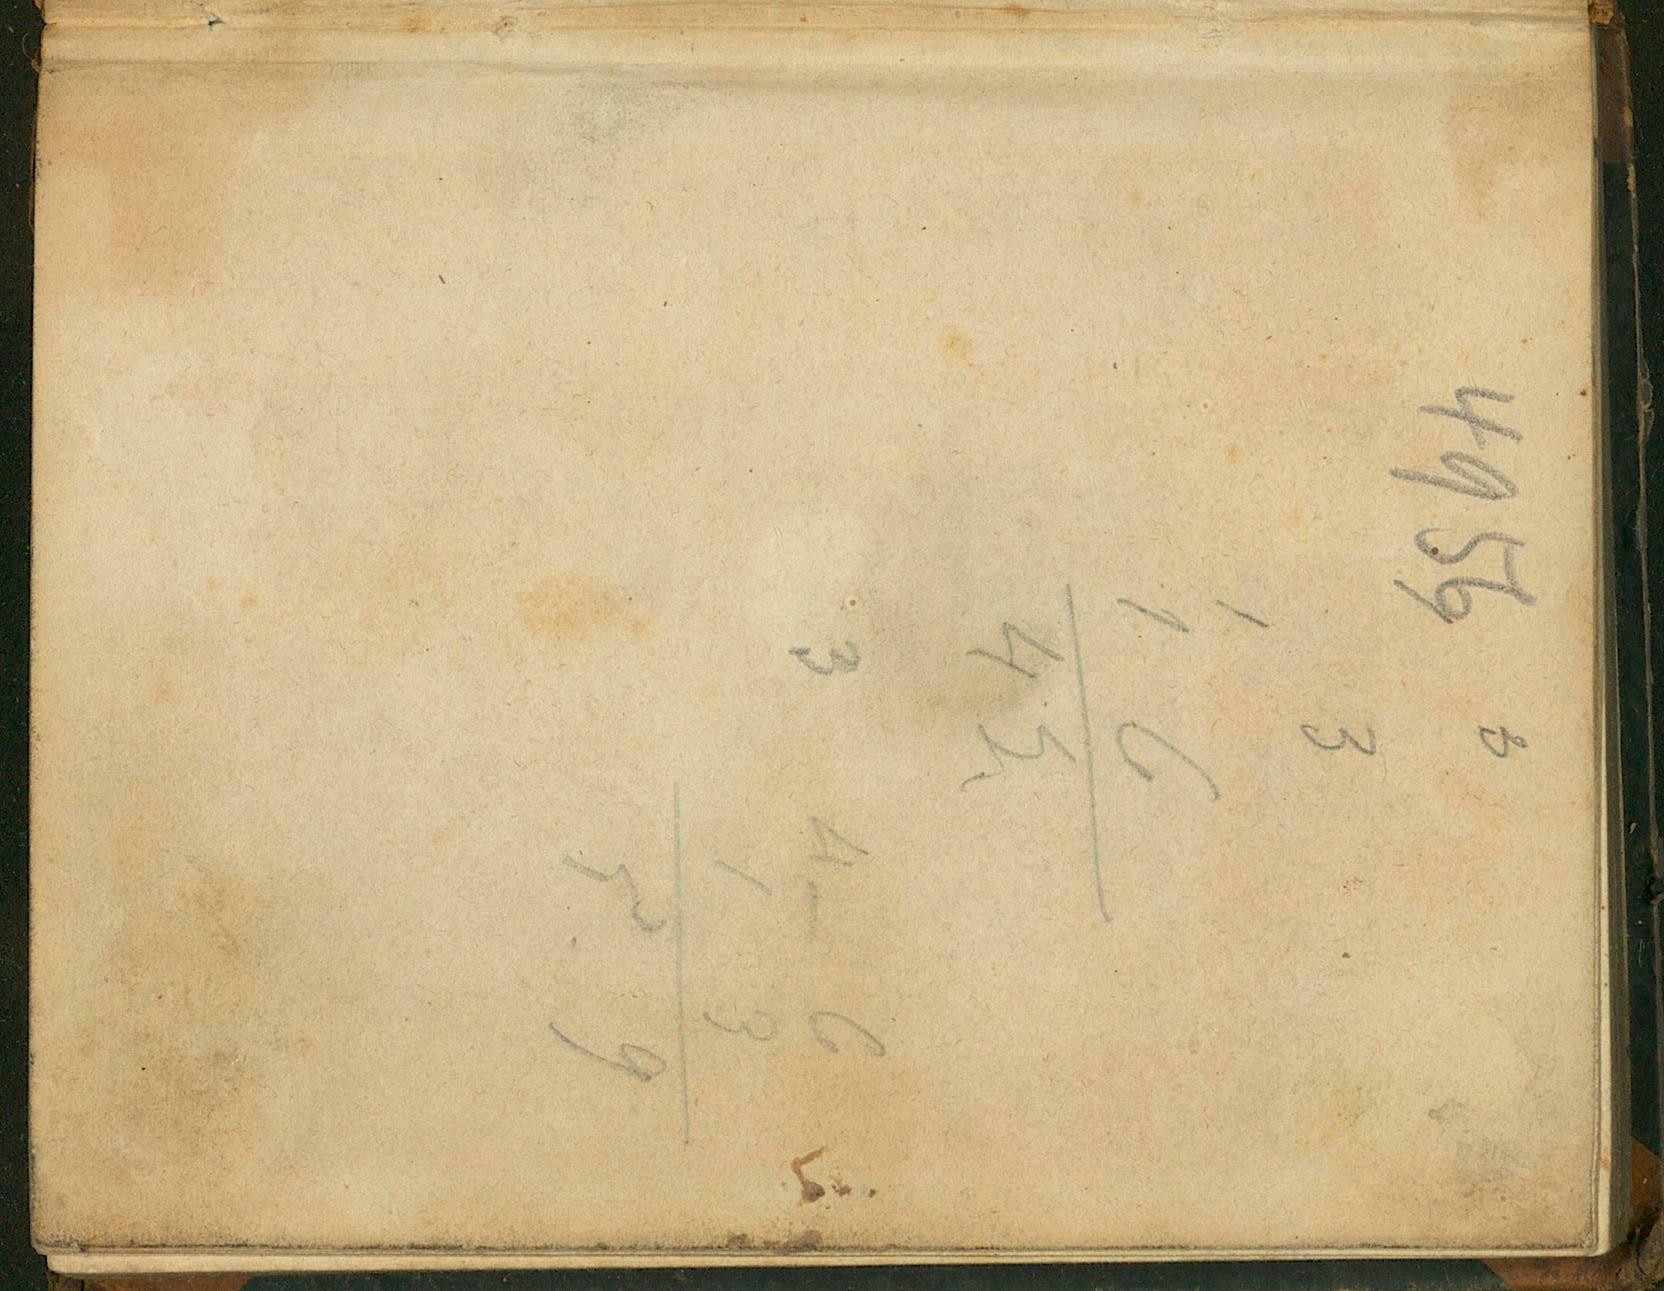 4959
3
1
11 6
4 5
3 4 - 6
1 3
5 9